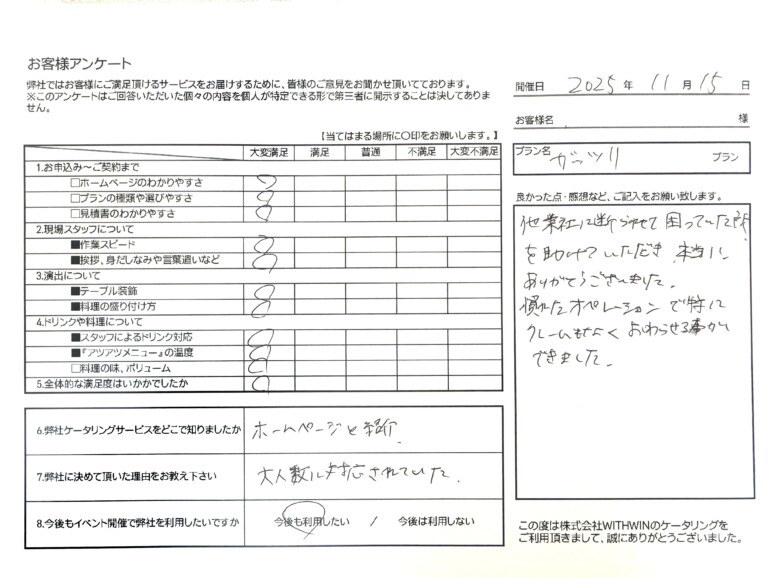 お客様アンケート
弊社ではお客様にご満足頂けるサービスをお届けするために、皆様のご意見をお聞かせ頂いております。
※このアンケートはご回答いただいた個々の内容を個人が特定できる形で第三者に開示することは決してありま
せん。
【当てはまる場所に〇印をお願いします。】
大変満足 満足 普通 不満足 大変不満足
1.お申込み～ご契約まで
□ホームページのわかりやすさ
□プランの種類や選びやすさ
□見積書のわかりやすさ
2.現場スタッフについて
■作業スピード
■挨拶、身だしなみや言葉遣いなど
3.演出について
■テーブル装飾
■料理の盛り付け方
4.ドリンクや料理について
■スタッフによるドリンク対応
■『アツアツメニュー』の温度
□料理の味、ボリューム
5.全体的な満足度はいかがでしたか
6.弊社ケータリングサービスをどこで知りましたか ホームページと紹介
7.弊社に決めて頂いた理由をお教え下さい 大人数に対応されていた。
8.今後もイベント開催で弊社を利用したいですか 今後も利用したい / 今後は利用しない
開催日 2025 年 11 月 15 日
お客様名 様
プラン名 ガッツリ プラン
良かった点・感想など、ご記入をお願い致します。
他業社に断らせて困っていた所
を助けていただき 本当に
ありがとうございました。
慣れたオペレーションで特に
クレームもなく おわらせる事が
できました。
この度は株式会社WITHWINのケータリングを
ご利用頂きまして、誠にありがとうございました。